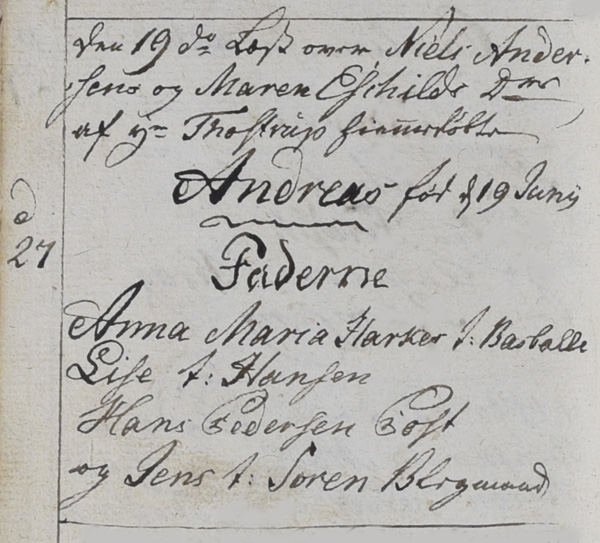 den 19 do Læst over Niels Ander-
sens og Maren Eschilds Dtr
af yn Thostrup hiemedøbte
Andreas fød d 19 Junij
d
27
Faderne
Anna Maria Harker t: Basballe
Lise t: Hansen
Hans Pedersen Post
og Jens t: Soren Bergmand